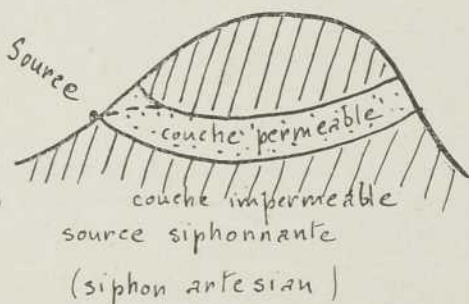 Source
couche permeable
couche impermeable
source siphonnante
(siphon artesian)